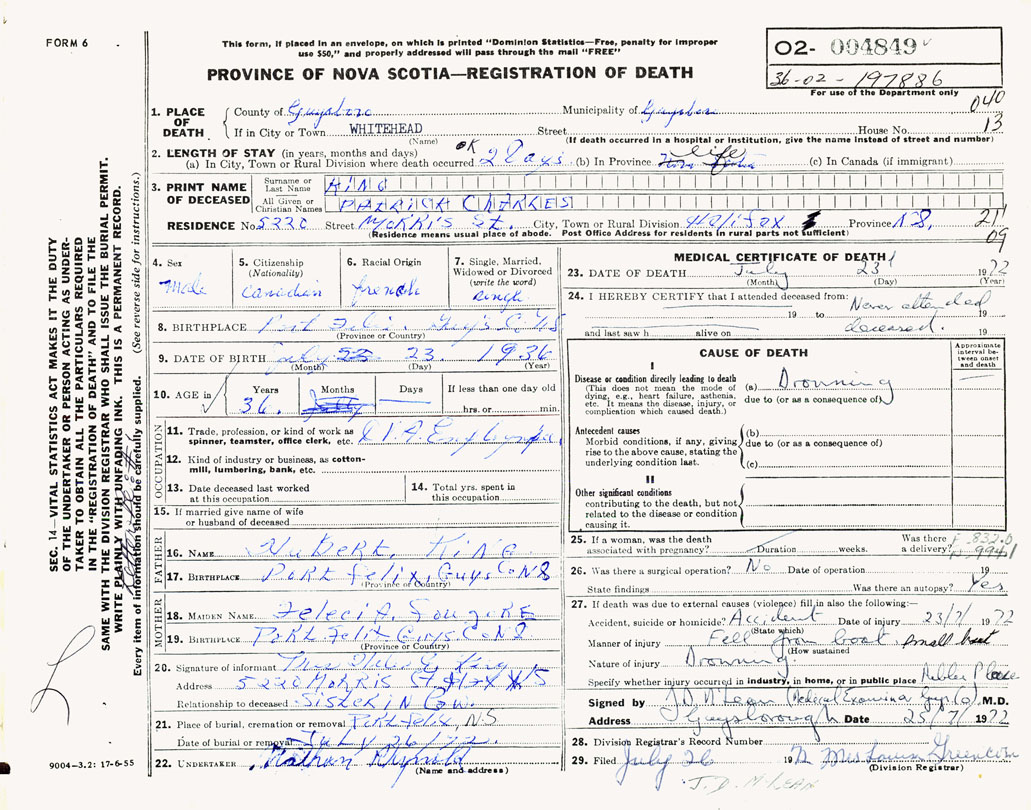 FORM 6
This form, if placed in an envelope, on which is printed "Dominion Statistics—Free, penalty for improper
use $50," and properly addressed will pass through the mail "FREE"
PROVINCE OF NOVA SCOTIA—REGISTRATION OF DEATH
O2- 004849
36-02-197886
For use of the Department only
040
13
1. PLACE OF DEATH
County of Guysboro Municipality of Guysboro
If in City or Town WHITEHEAD Street House No.
(Name) (If death occurred in a hospital or institution, give the name instead of street and number)
2. LENGTH OF STAY (in years, months and days) OK life
(a) In City, Town or Rural Division where death occurred 2 Days (b) In Province (c) In Canada (if immigrant)
3. PRINT NAME OF DECEASED
Surname or Last Name KING
All Given or Christian Names PATRICK CHARLES
RESIDENCE No. 5220 Street Morris St. City, Town or Rural Division Halifax Province N.S.
(Residence means usual place of abode. Post Office Address for residents in rural parts not sufficient)
21
09
4. Sex Male
5. Citizenship (Nationality) Canadian
6. Racial Origin French
7. Single, Married, Widowed or Divorced (write the word) Single
8. BIRTHPLACE Port Felix, Guys Co NS
(Province or Country)
9. DATE OF BIRTH July 23 1936
(Month) (Day) (Year)
10. AGE in Years 36 Months Days If less than one day old
hrs. or min.
OCCUPATION
11. Trade, profession, or kind of work as
spinner, teamster, office clerk, etc.
12. Kind of industry or business, as cotton-
mill, lumbering, bank, etc.
13. Date deceased last worked
at this occupation
14. Total yrs. spent in
this occupation
15. If married give name of wife
or husband of deceased
FATHER
16. NAME Hubert King
17. BIRTHPLACE Port Felix, Guys Co NS
(Province or Country)
MOTHER
18. MAIDEN NAME
19. BIRTHPLACE Port Felix Guys Co NS
(Province or Country)
20. Signature of informant
Address 5220 Morris St
Relationship to deceased Sister in Law
21. Place of burial, cremation or removal Port Felix, NS
Date of burial or removal July 26/72
22. UNDERTAKER Nathan
(Name and address)
9004-3.2: 17-6-55
MEDICAL CERTIFICATE OF DEATH
23. DATE OF DEATH July 23 1972
(Month) (Day) (Year)
24. I HEREBY CERTIFY that I attended deceased from: Never attended
19 to deceased. 19
and last saw h alive on 19
CAUSE OF DEATH
Approximate interval between onset and death
I
Disease or condition directly leading to death
(This does not mean the mode of
dying, e.g., heart failure, asthenia,
etc. It means the disease, injury, or
complication which caused death.)
(a) Drowning
due to (or as a consequence of)
Antecedent causes
Morbid conditions, if any, giving
rise to the above cause, stating the
underlying condition last.
(b)
due to (or as a consequence of)
(c)
II
Other significant conditions
contributing to the death, but not
related to the disease or condition
causing it.
25. If a woman, was the death
associated with pregnancy? Duration weeks. Was there
a delivery?
E 832.0
26. Was there a surgical operation? No Date of operation 19
State findings Was there an autopsy? Yes
27. If death was due to external causes (violence) fill in also the following:—
Accident, suicide or homicide? Accident Date of injury 23/7/1972
(State which)
Manner of injury Fell from boat small boat
(How sustained
Nature of injury Drowning.
Specify whether injury occurred in industry, in home, or in public place Public Place
Signed by J D McLean (Medical Examiner Guys. Co) M.D.
Address Guysborough Date 25/7/1972
28. Division Registrar's Record Number
29. Filed July 26 1972
(Division Registrar)
J. D. McLean
SEC. 14—VITAL STATISTICS ACT MAKES IT THE DUTY
OF THE UNDERTAKER OR PERSON ACTING AS UNDER-
TAKER TO OBTAIN ALL THE PARTICULARS REQUIRED
IN THE "REGISTRATION OF DEATH" AND TO FILE THE
SAME WITH THE DIVISION REGISTRAR WHO SHALL ISSUE THE BURIAL PERMIT.
WRITE PLAINLY WITH UNFADING INK. THIS IS A PERMANENT RECORD.
Every item of information should be carefully supplied. (See reverse side for instructions.)